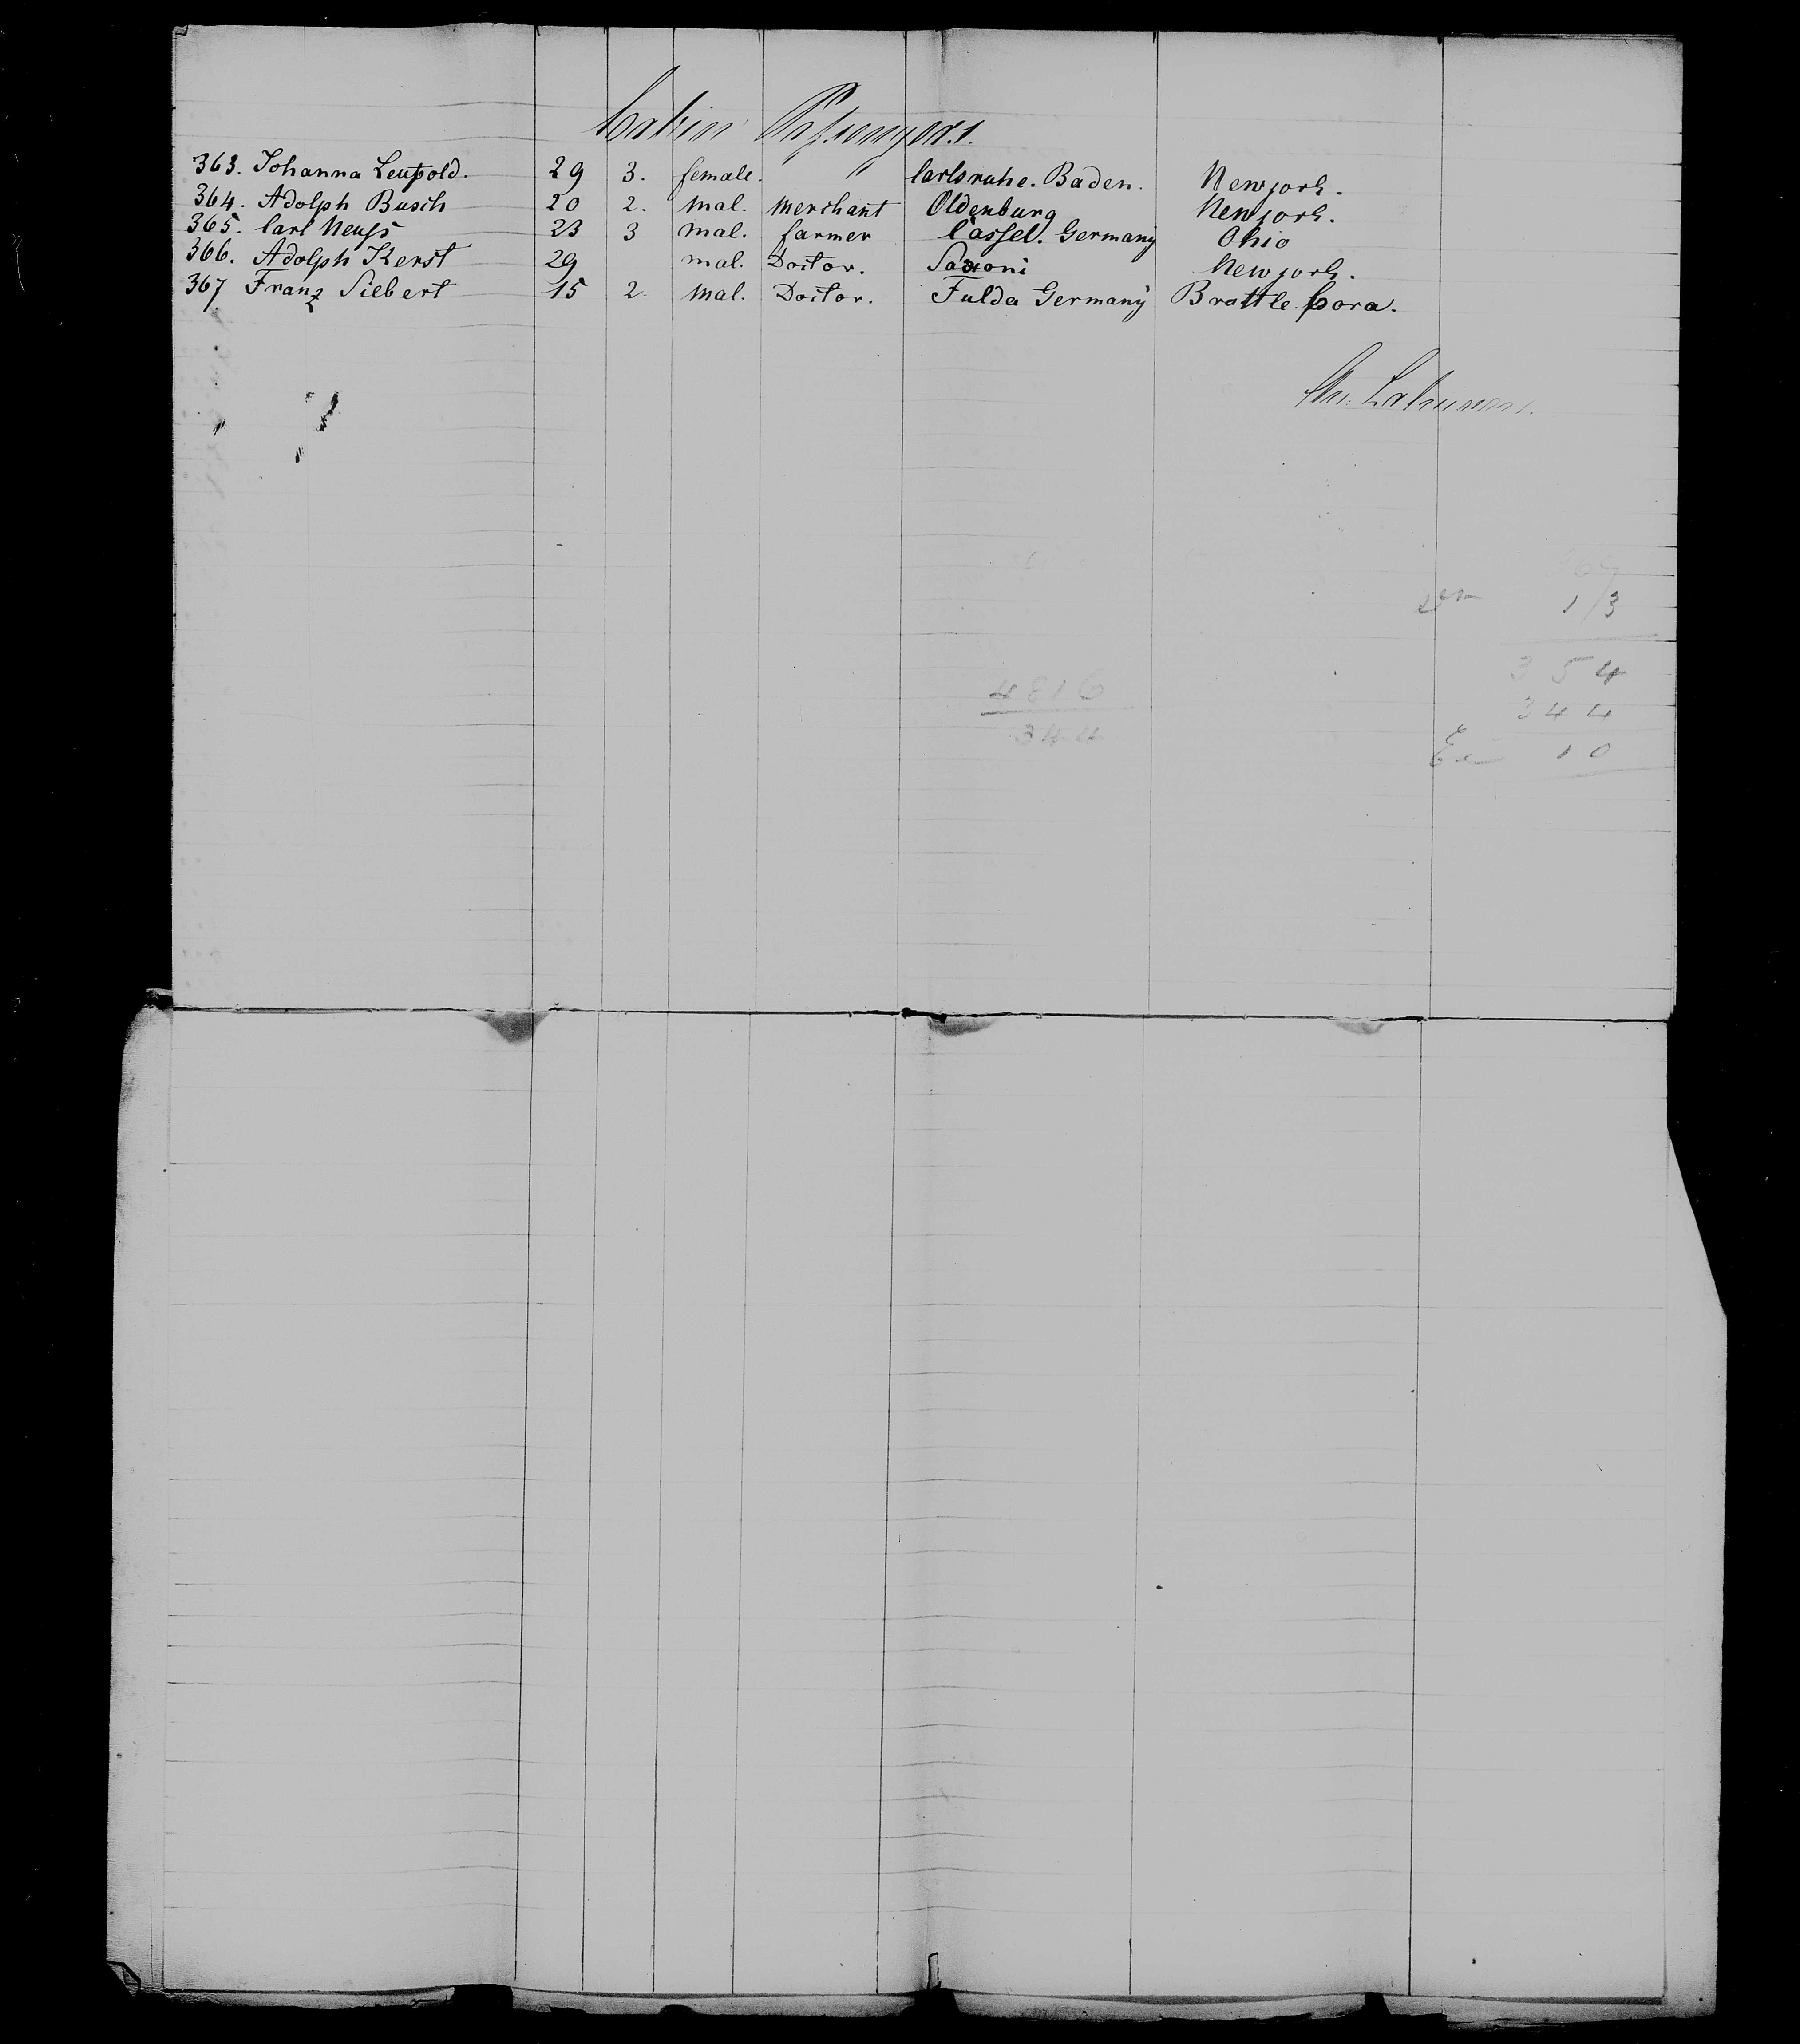 Cabin Passengers.
363. Johanna Leupold. 29 3. female. " Carlsruhe. Baden. Newyork.
364. Adolph Busch 20 2. Mal. Merchant Oldenburg Newyork.
365. Carl Neuss 23 3 Mal. farmer Cassel. Germany Ohio
366. Adolph Kerst 29 Mal. Doctor. Saxoni Newyork.
367 Franz Siebert 15 2. Mal. Doctor. Fulda Germany Brattle bora.
367
13
354
4816 344
344 10